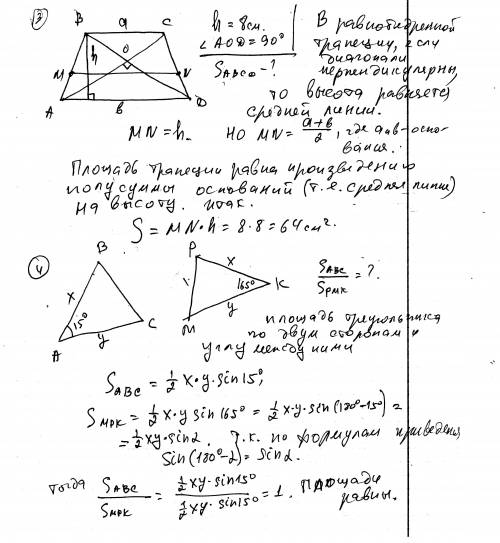 ③ B a C h = 8см. В равнобедренной
∠AOD = 90° трапеции, если
h O S ABCD - ? диагонали
M N перпендикулярны,
A b D то высота равняется
средней линии.
MN = h. но MN = a+b/2, где a и b - осно-
вания.
Площадь трапеции равна произведению
полусуммы оснований (т.е. средняя линии)
на высоту. итак.
S = MN·h = 8·8 = 64 см².
④ B P x K S ABC / S PMK = ?
x 15° y C 165° y
A M площадь треугольника
по двум сторонам и
углу между ними
S ABC = 1/2 x·y·sin15°,
S MPK = 1/2 x·y sin 165° = 1/2 x·y·sin(180°-15°) =
= 1/2 xy·sin α. Т.к. по формулам приведения
sin(180°-α) = sin α.
тогда S ABC / S MPK = 1/2 xy·sin15° / 1/2 xy·sin15° = 1. Площади
равны.